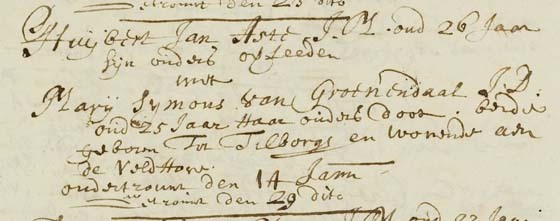 getrouwt den 25 dito
Huijbert Jan Aste J:M: oud 26 Jaar
sijn ouders
met
Marij Symons van Groenendaal J.D.
oud 25 Jaar Haar ouders doot beide
geboren Tot Tilborgh en wonende aen
de Veldhove
ondertrouwt den 14 Janu
getrouwt den 29 dito